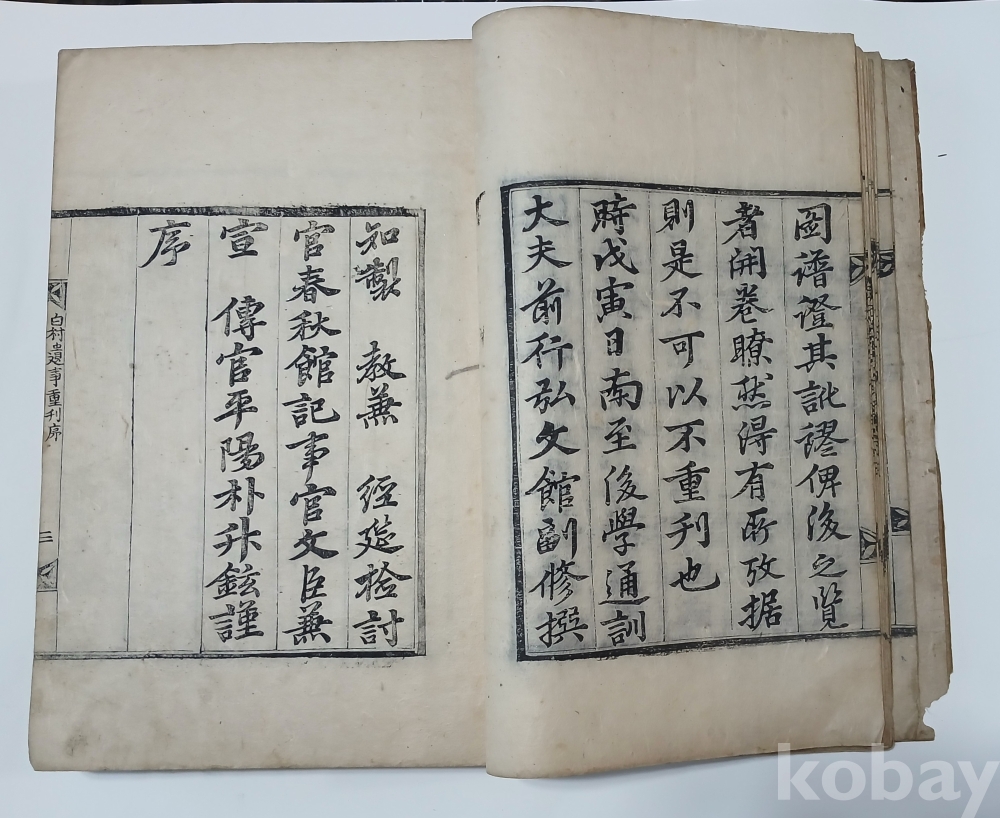 圖譜證其訛謬俾後之覽
者開卷瞭然得有所攷据
則是不可以不重刊也
時戊寅日南至後學通訓
大夫前行弘文館副修撰
知製 教兼 經筵檢討
官春秋館記事官文臣兼
宣 傳官平陽朴升鉉謹
序
白村遺事重刊序
三
kobay